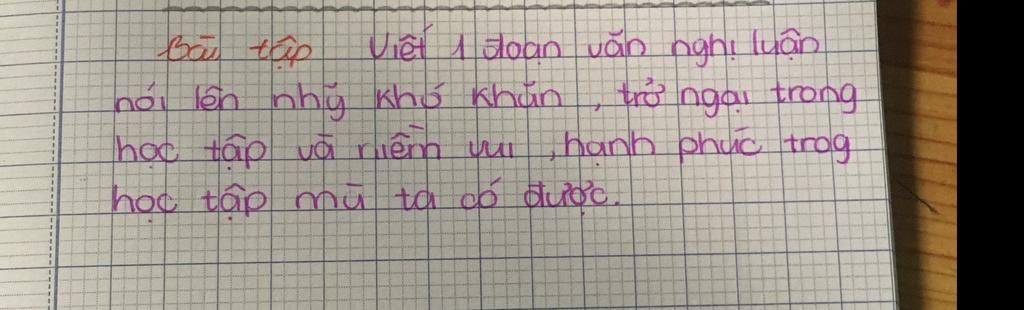 Bài tập Viết 1 đoạn văn nghị luận
nói lên nhg̃ khó khăn, trở ngại trong
học tập và niềm vui, hạnh phúc trog
học tập mà ta có được.